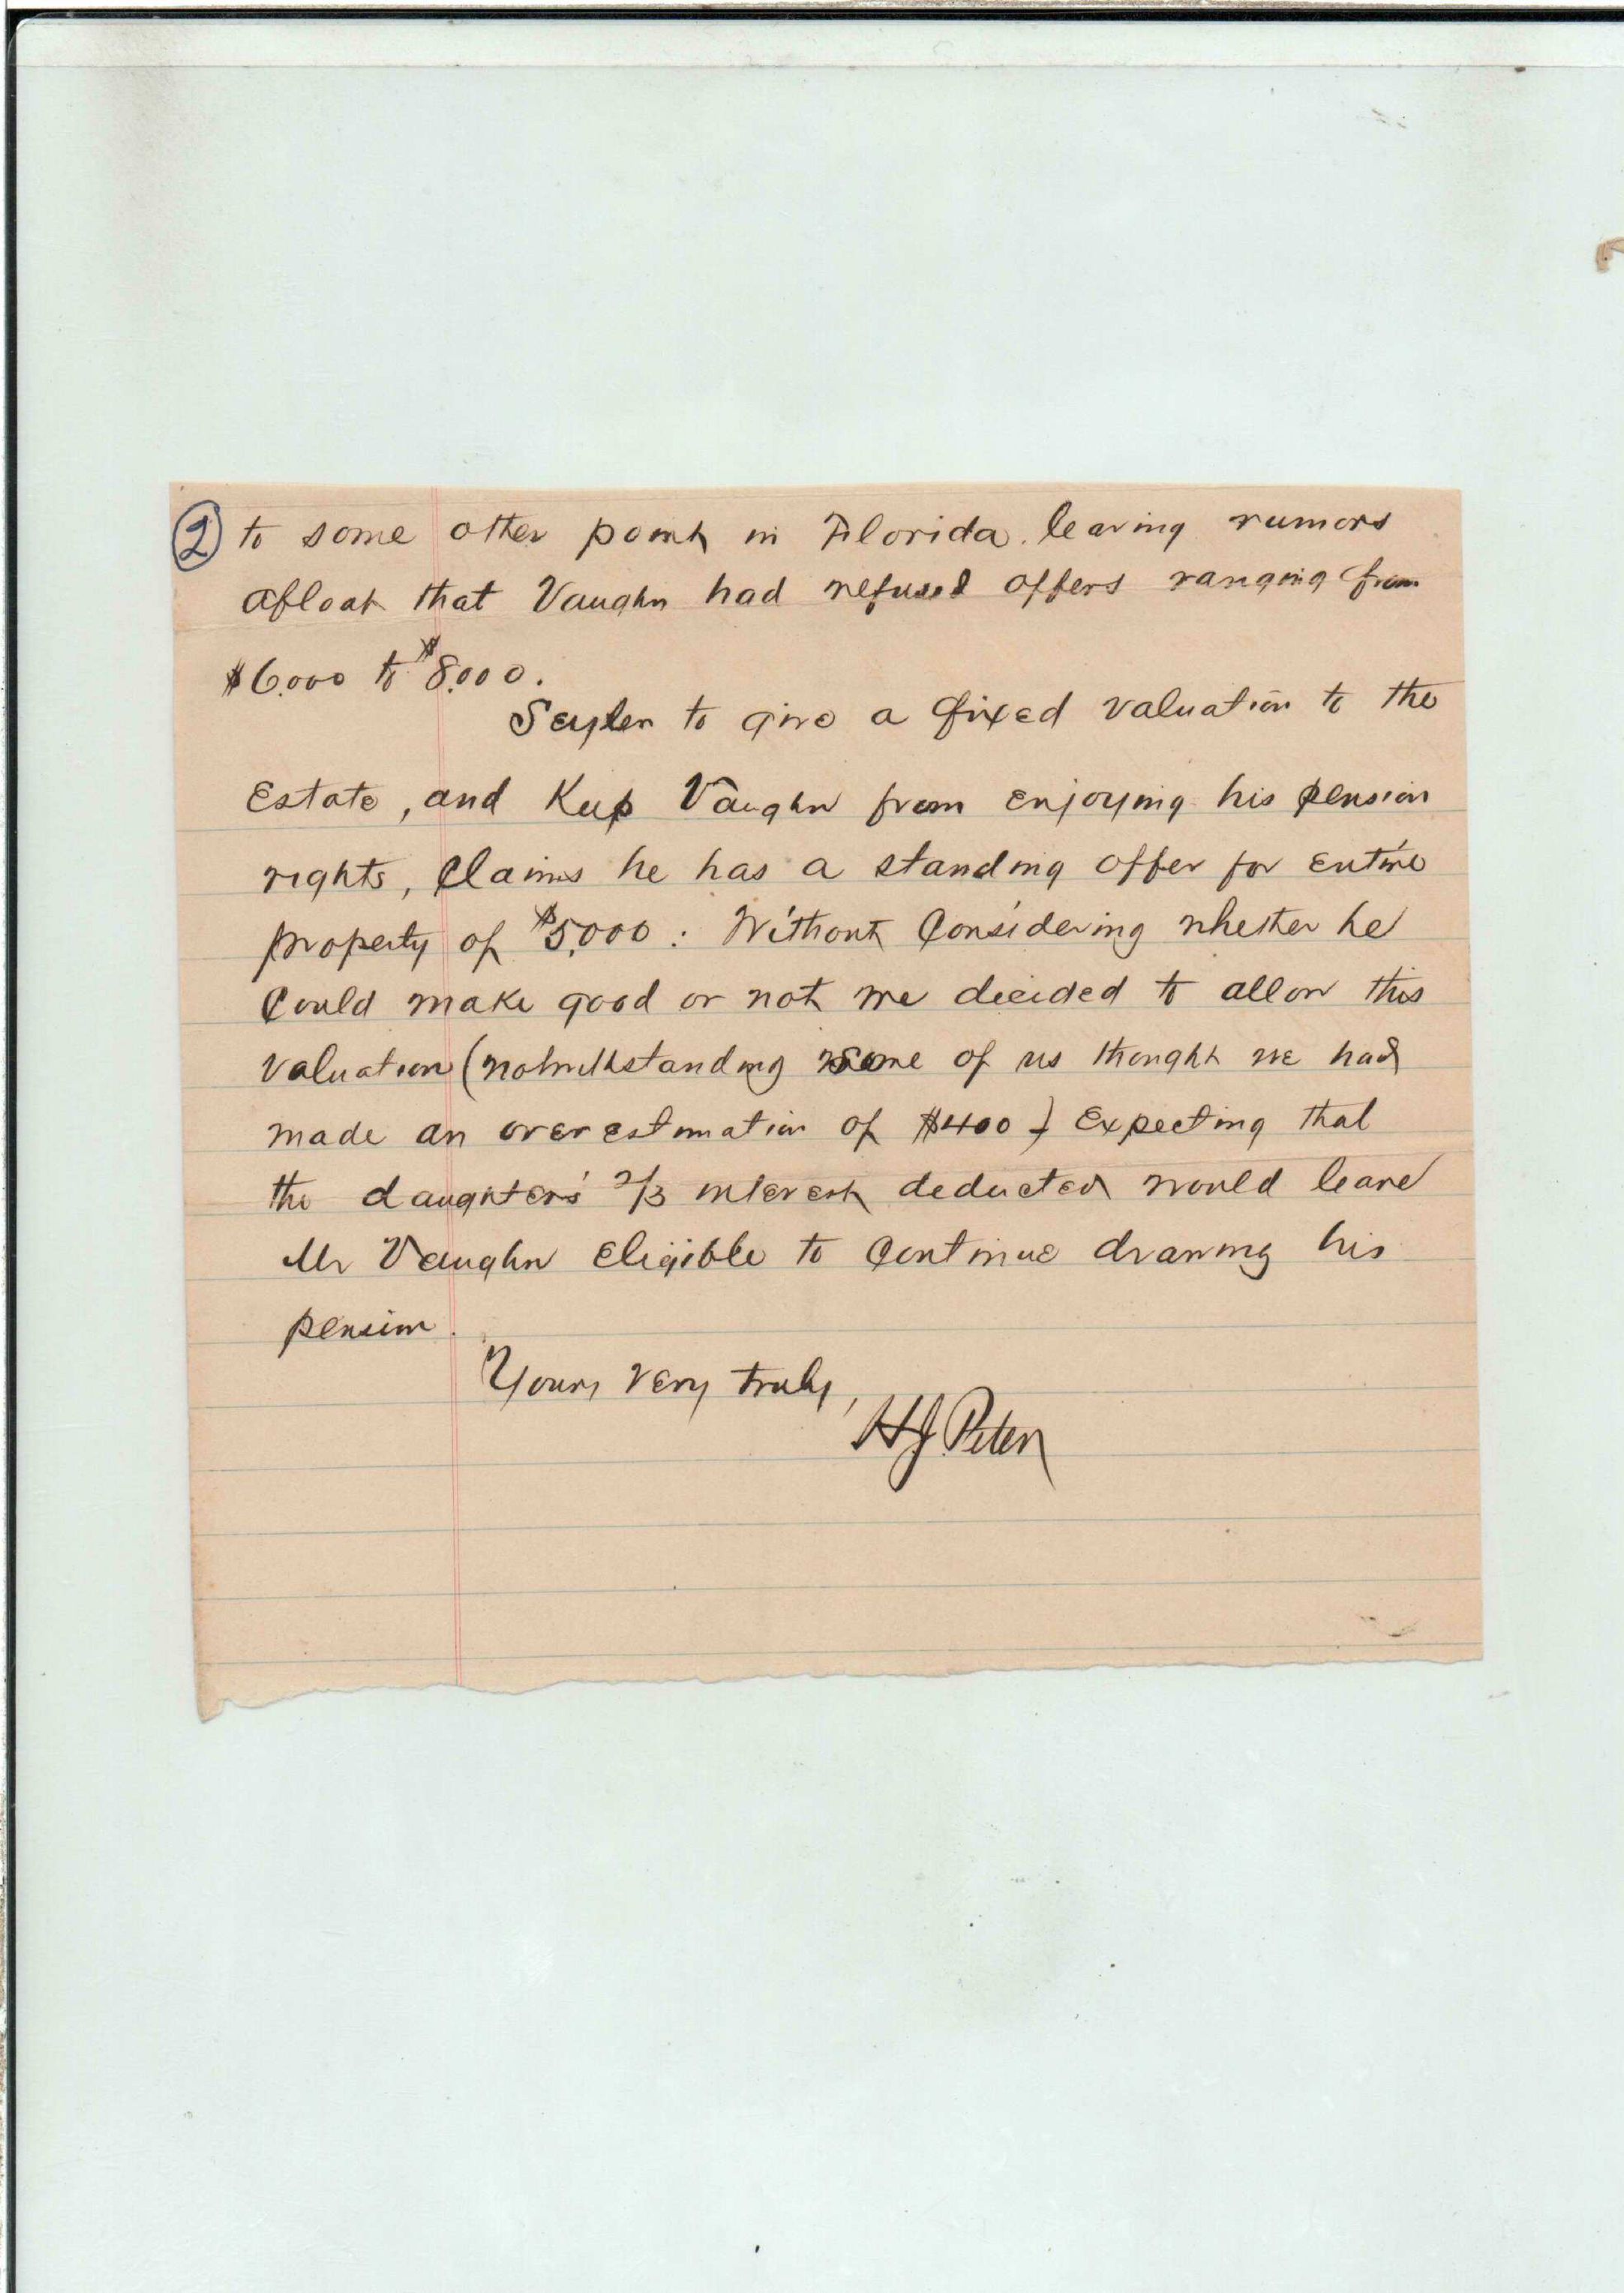 2 to some other point in Florida. leaving rumors
afloat that Vaughn had refused offers ranging from
$6.000 to $8.000.
Seyler to give a fixed valuation to the
Estate, and Keep Vaughn from enjoying his pension
rights, Claims he has a standing offer for entire
property of $5,000: Without Considering whether he
Could make good or not we decided to allow this
valuation (notwithstanding some of us thought we had
made an overestimation of $400) Expecting that
the daughters' 2/3 interest deducted would leave
Mr Vaughn Eligible to Continue drawing his
pension.
Yours very truly,
H.J. Peter